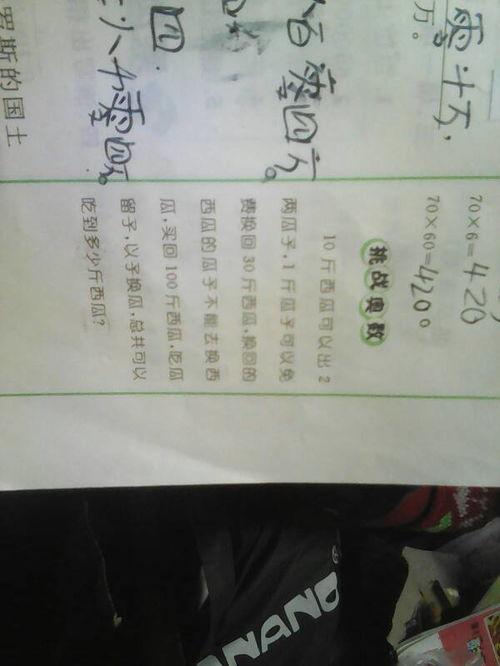 零十万,
万。
八百零四万。
四.
罗斯的国土
70×6=420
70×60=4200
挑战奥数
10 斤西瓜可以出 2
两瓜子,1 斤瓜子可以免
费换回 30 斤西瓜,换回的
西瓜的瓜子不能去换西
瓜,买回 100 斤西瓜,吃瓜
留子,以子换瓜,总共可以
吃到多少斤西瓜?
NANO